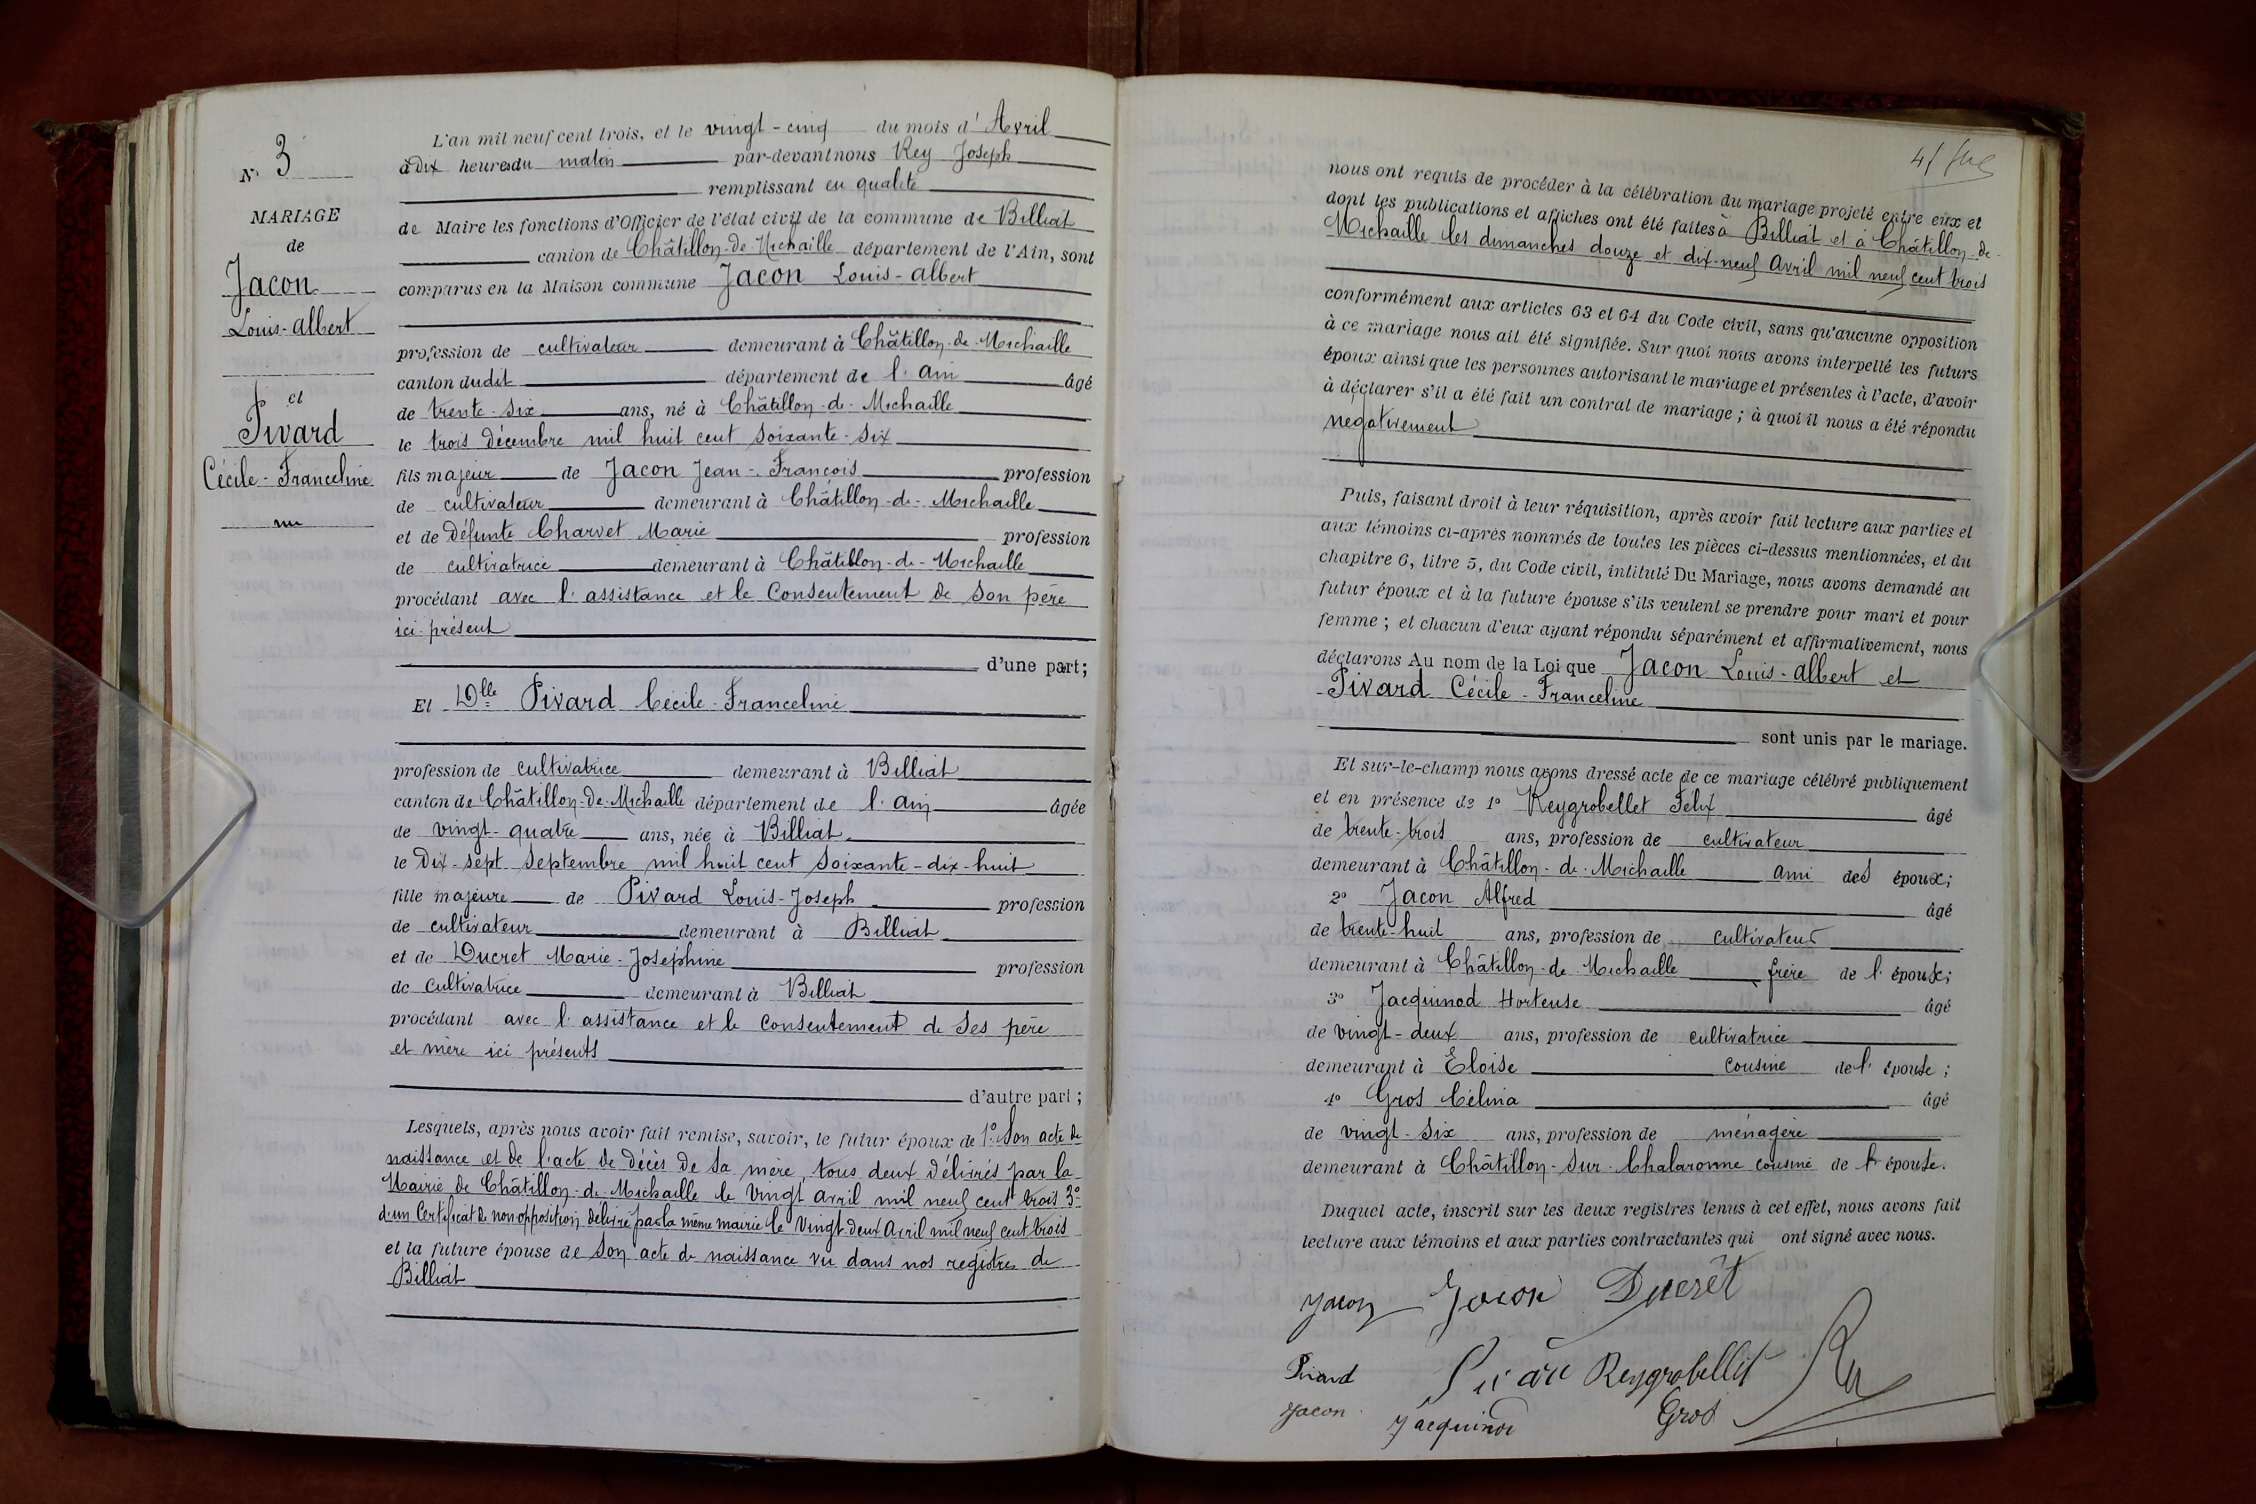 N° 3
MARIAGE
de
Jacon
Louis-Albert
et
Pivard
Cécile-Franceline
L'an mil neuf cent trois, et le vingt-cinq du mois d'Avril
à dix heures du matin par-devant nous Rey Joseph
remplissant en qualité
de Maire les fonctions d'Officier de l'état civil de la commune de Billiat
canton de Châtillon-de-Michaille département de l'Ain, sont
comparus en la Maison commune Jacon Louis-Albert
profession de cultivateur demeurant à Châtillon-de-Michaille
canton dudit département de l'Ain âgé
de trente-six ans, né à Châtillon-de-Michaille
le trois décembre mil huit cent soixante-six
fils majeur de Jacon Jean-François profession
de cultivateur demeurant à Châtillon-de-Michaille
et de défunte Charvet Marie profession
de cultivatrice demeurant à Châtillon-de-Michaille
procédant avec l'assistance et le consentement de son père
ici présent
d'une part;
Et Dlle Pivard Cécile-Franceline
profession de cultivatrice demeurant à Billiat
canton de Châtillon-de-Michaille département de l'Ain âgée
de vingt-quatre ans, née à Billiat
le dix-sept septembre mil huit cent soixante-dix-huit
fille majeure de Pivard Louis-Joseph profession
de cultivateur demeurant à Billiat
et de Ducret Marie-Joséphine profession
de cultivatrice demeurant à Billiat
procédant avec l'assistance et le consentement de ses père
et mère ici présents
d'autre part;
Lesquels, après nous avoir fait remise, savoir, le futur époux de 1° son acte de
naissance et de l'acte de décès de sa mère, tous deux délivrés par la
Mairie de Châtillon-de-Michaille le vingt avril mil neuf cent trois 3°
d'un certificat de non opposition délivré par la même mairie le vingt-deux Avril mil neuf cent trois
et la future épouse de son acte de naissance vu dans nos registres de
Billiat
41
nous ont requis de procéder à la célébration du mariage projeté entre eux et
dont les publications et affiches ont été faites à Billiat et à Châtillon-de-
Michaille les dimanches douze et dix-neuf Avril mil neuf cent trois
conformément aux articles 63 et 64 du Code civil, sans qu'aucune opposition
à ce mariage nous ait été signifiée. Sur quoi nous avons interpellé les futurs
époux ainsi que les personnes autorisant le mariage et présentes à l'acte, d'avoir
à déclarer s'il a été fait un contrat de mariage; à quoi il nous a été répondu
négativement
Puis, faisant droit à leur réquisition, après avoir fait lecture aux parties et
aux témoins ci-après nommés de toutes les pièces ci-dessus mentionnées, et du
chapitre 6, titre 5, du Code civil, intitulé Du Mariage, nous avons demandé au
futur époux et à la future épouse s'ils veulent se prendre pour mari et pour
femme; et chacun d'eux ayant répondu séparément et affirmativement, nous
déclarons Au nom de la Loi que Jacon Louis-Albert et
Pivard Cécile-Franceline
sont unis par le mariage.
Et sur-le-champ nous avons dressé acte de ce mariage célébré publiquement
et en présence de 1° Reygrobellet Félix âgé
de trente-trois ans, profession de cultivateur
demeurant à Châtillon-de-Michaille ami des époux;
2° Jacon Alfred âgé
de trente-huit ans, profession de cultivateur
demeurant à Châtillon-de-Michaille frère de l'époux;
3° Jacquinod Hortense âgé
de vingt-deux ans, profession de cultivatrice
demeurant à Eloise cousine de l'épouse;
4° Gros Célina âgé
de vingt-six ans, profession de ménagère
demeurant à Châtillon-sur-Chalaronne cousine de l'épouse.
Duquel acte, inscrit sur les deux registres tenus à cet effet, nous avons fait
lecture aux témoins et aux parties contractantes qui ont signé avec nous.
Jacon Jacon Ducrêt
Pivard Reygrobellet Rey
Jacon Jacquinod Gros